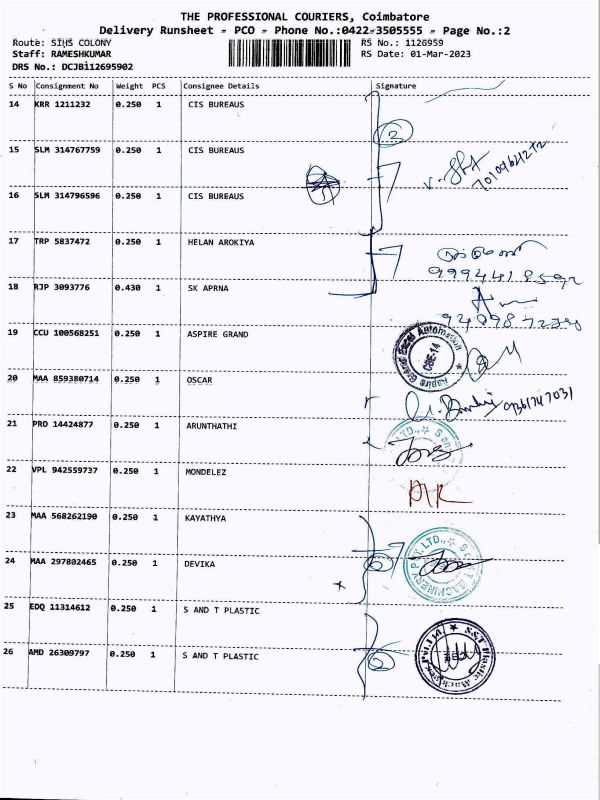 THE PROFESSIONAL COURIERS, Coimbatore
Delivery Runsheet - PCO - Phone No.:0422-3505555 - Page No.:2
Route: SIHS COLONY
RS No.: 1126959
Staff: RAMESHKUMAR
RS Date: 01-Mar-2023
DRS No.: DCJB112695902
S No Consignment No Weight PCS Consignee Details Signature
14 KRR 1211232 0.250 1 CIS BUREAUS
15 SLM 314767759 0.250 1 CIS BUREAUS
16 SLM 314796596 0.250 1 CIS BUREAUS
17 TRP 5837472 0.250 1 HELAN AROKIYA
18 RJP 3093776 0.430 1 SK APRNA
19 CCU 100568251 0.250 1 ASPIRE GRAND
20 MAA 859380714 0.250 1 OSCAR
21 PRO 14424877 0.250 1 ARUNTHATHI
22 VPL 942559737 0.250 1 MONDELEZ
23 MAA 568262190 0.250 1 KAYATHYA
24 MAA 297802465 0.250 1 DEVIKA
25 EDQ 11314612 0.250 1 S AND T PLASTIC
26 AMD 26309797 0.250 1 S AND T PLASTIC